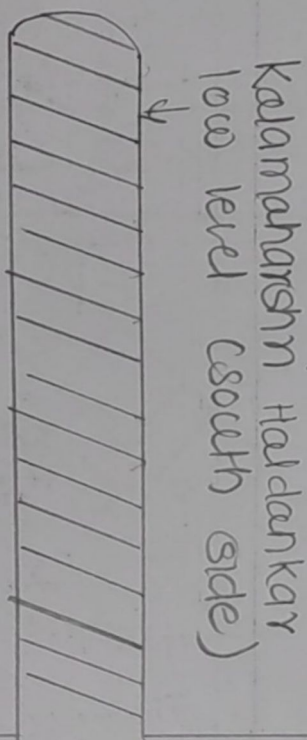 Kalamaharshn Haldankar
low level (south side)